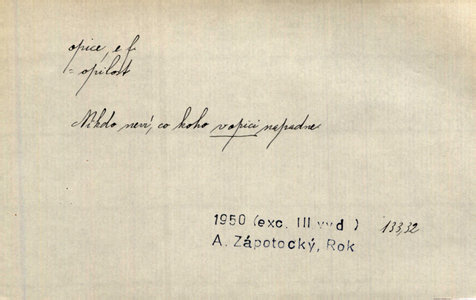 opice, e f
= opilost
Nikdo neví, co koho vopici napadne
1950 (exc. III vyd ) 133,32
A. Zápotocký, Rok